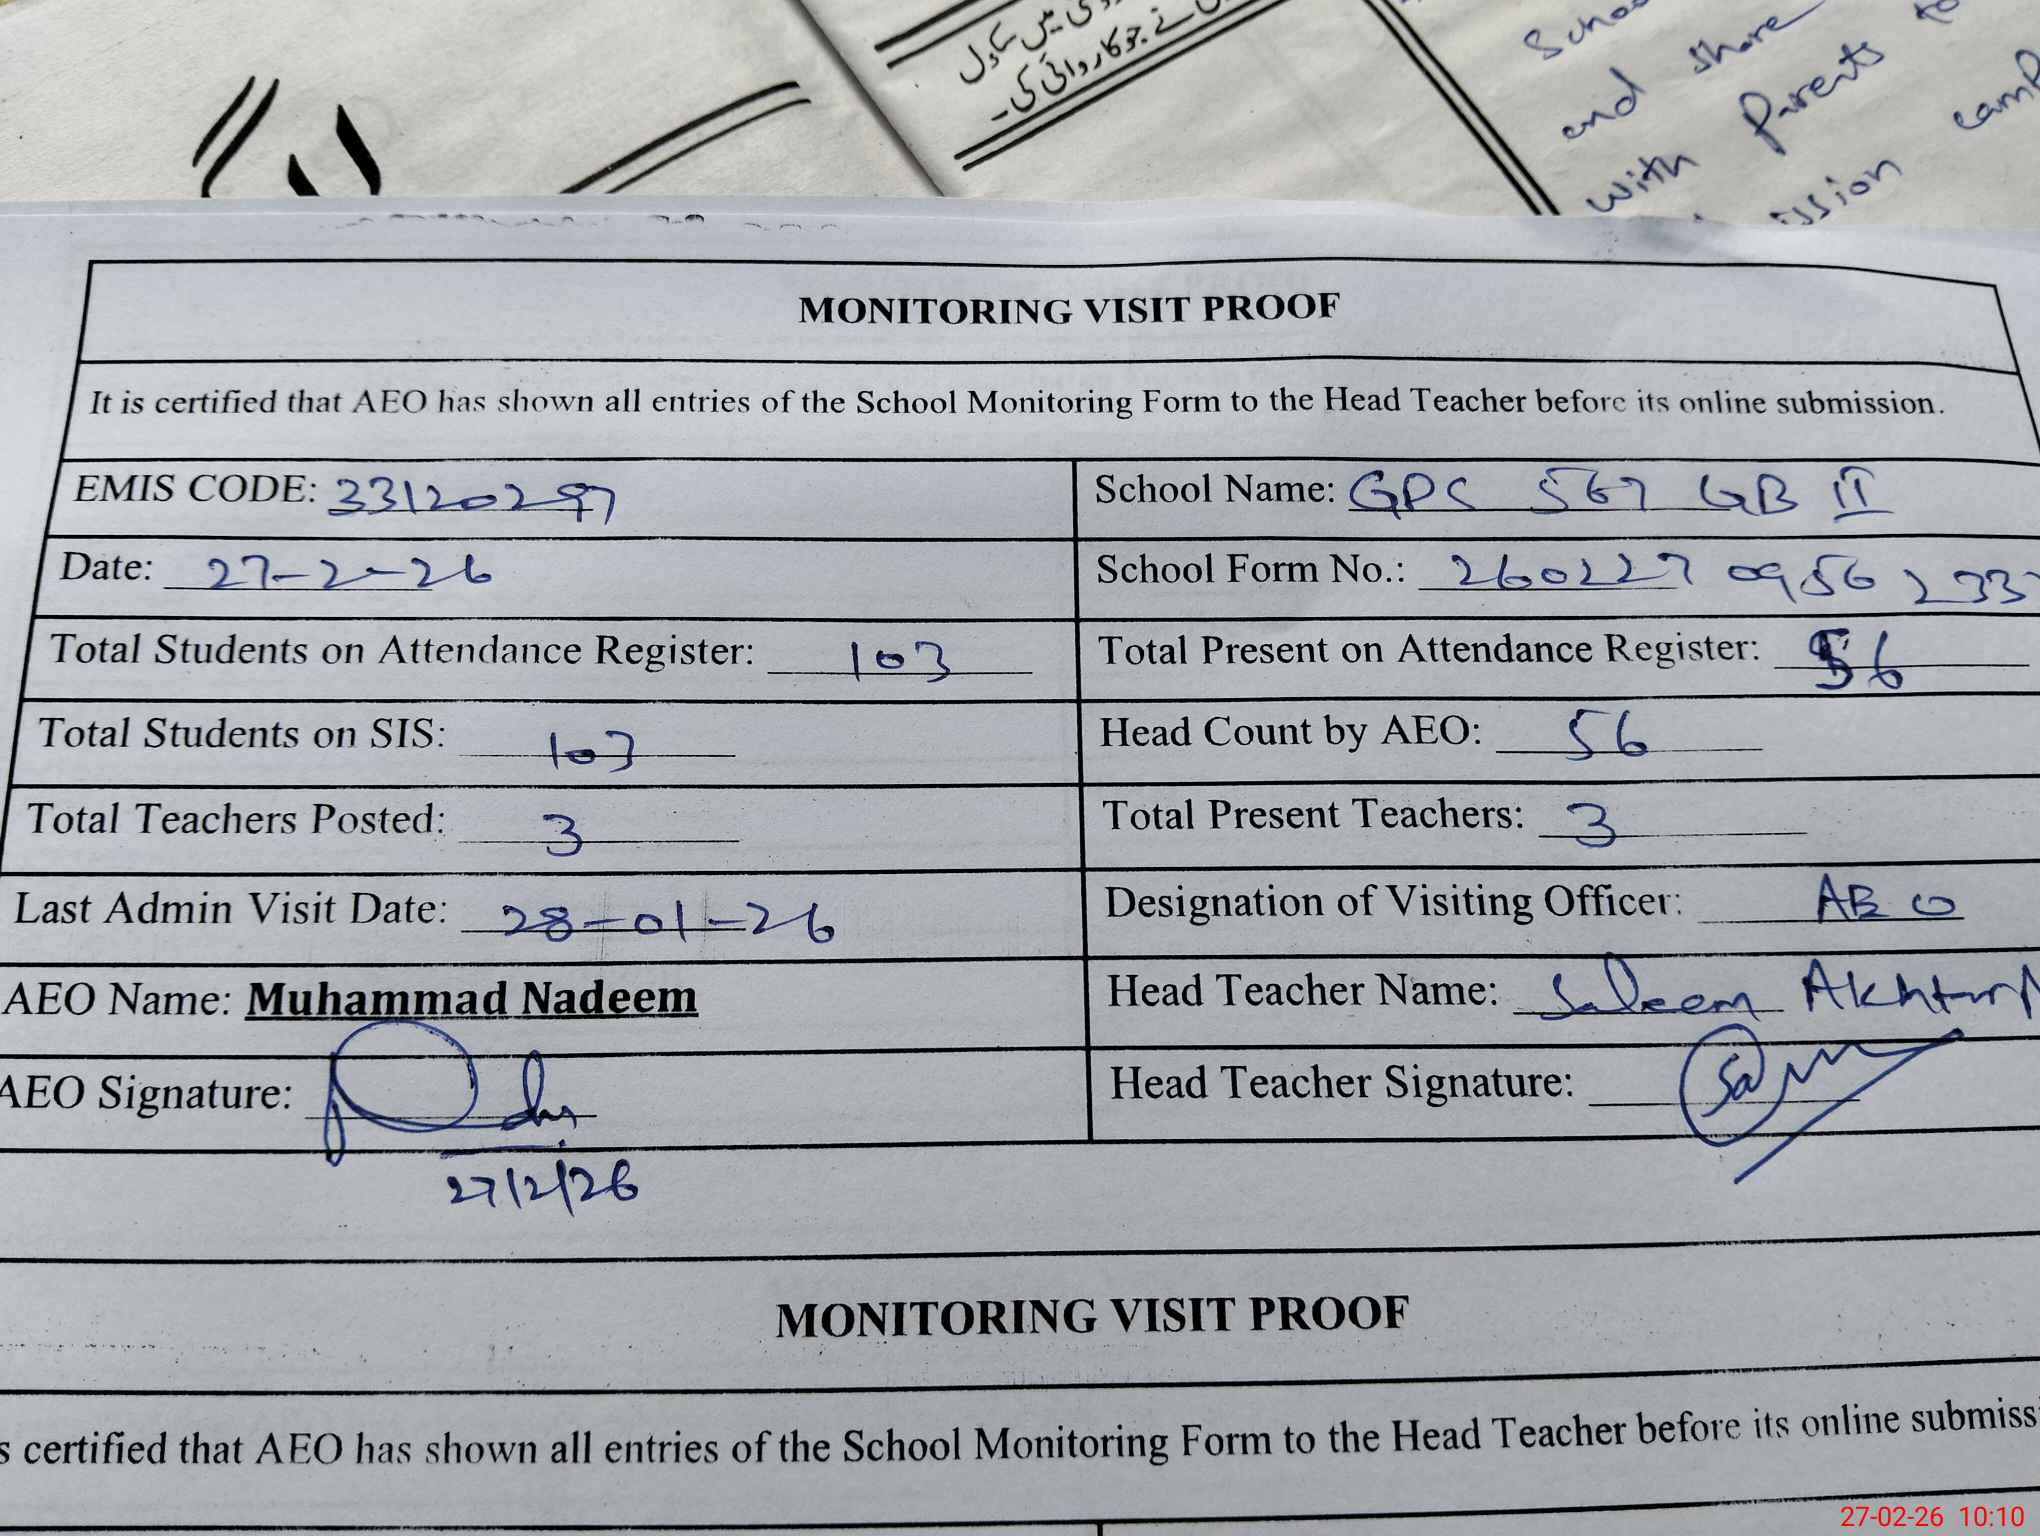 میں سکول
نے جو کاروائی کی۔
and share
with Parents to
MONITORING VISIT PROOF
It is certified that AEO has shown all entries of the School Monitoring Form to the Head Teacher before its online submission.
EMIS CODE: 33120297
School Name: GPS 567 GB II
Date: 27-2-26
School Form No.: 260227 0956 233
Total Students on Attendance Register: 103
Total Present on Attendance Register: 56
Total Students on SIS: 103
Head Count by AEO: 56
Total Teachers Posted: 3
Total Present Teachers: 3
Last Admin Visit Date: 28-01-26
Designation of Visiting Officer: AEO
AEO Name: Muhammad Nadeem
Head Teacher Name: Saleem Akhtar
AEO Signature:
Head Teacher Signature:
27/2/26
MONITORING VISIT PROOF
certified that AEO has shown all entries of the School Monitoring Form to the Head Teacher before its online submiss
27-02-26 10:10